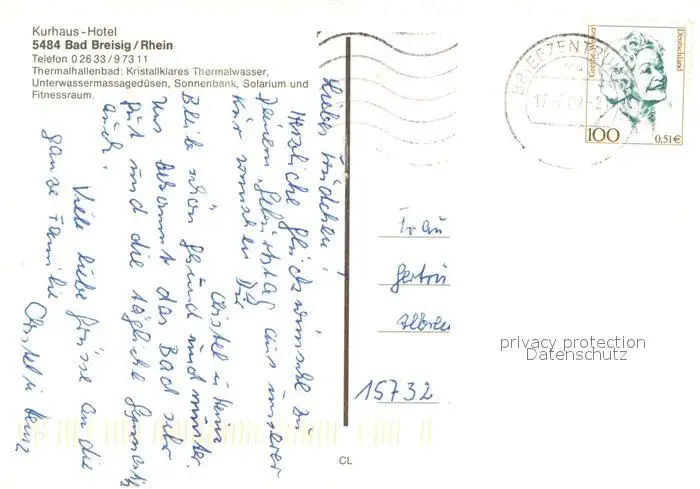 Kurhaus-Hotel
5484 Bad Breisig/Rhein
Telefon 0 26 33 / 9 73 11
Thermalhallenbad: Kristallklares Thermalwasser,
Unterwassermassagedüsen, Sonnenbank, Solarium und
Fitnessraum.
Liebes Trudchen!
Herzliche Glückwünsche zu
Deinem Geburtstag aus unserer
Kur senden Dir
Christel u Heinz
Bleibe schön gesund und munter.
Uns bekommt das Bad sehr
gut und die tägliche Gymnastik
auch.
Viele liebe Grüsse an die
ganze Familie
Christel u Heinz
BRIEFZENTRUM
Grethe Weiser
Deutschland
100
0,51€
Frau
Gertru
15732
privacy protection
Datenschutz
CL